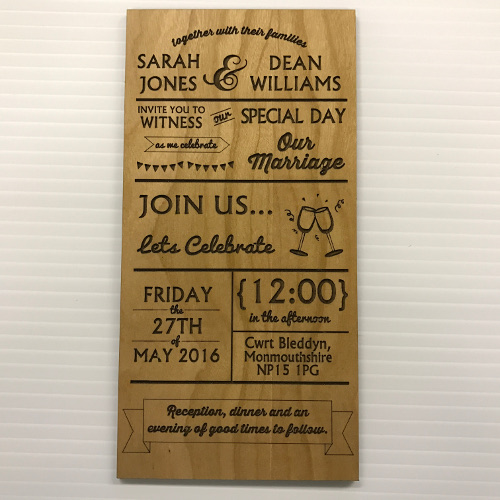 together with their families
SARAH & DEAN
JONES WILLIAMS
INVITE YOU TO
WITNESS our SPECIAL DAY
as we celebrate Our
Marriage
JOIN US...
Lets Celebrate
FRIDAY
the
27TH
of
MAY 2016
{12:00}
in the afternoon
Cwrt Bleddyn,
Monmouthshire
NP15 1PG
Reception, dinner and an
evening of good times to follow.